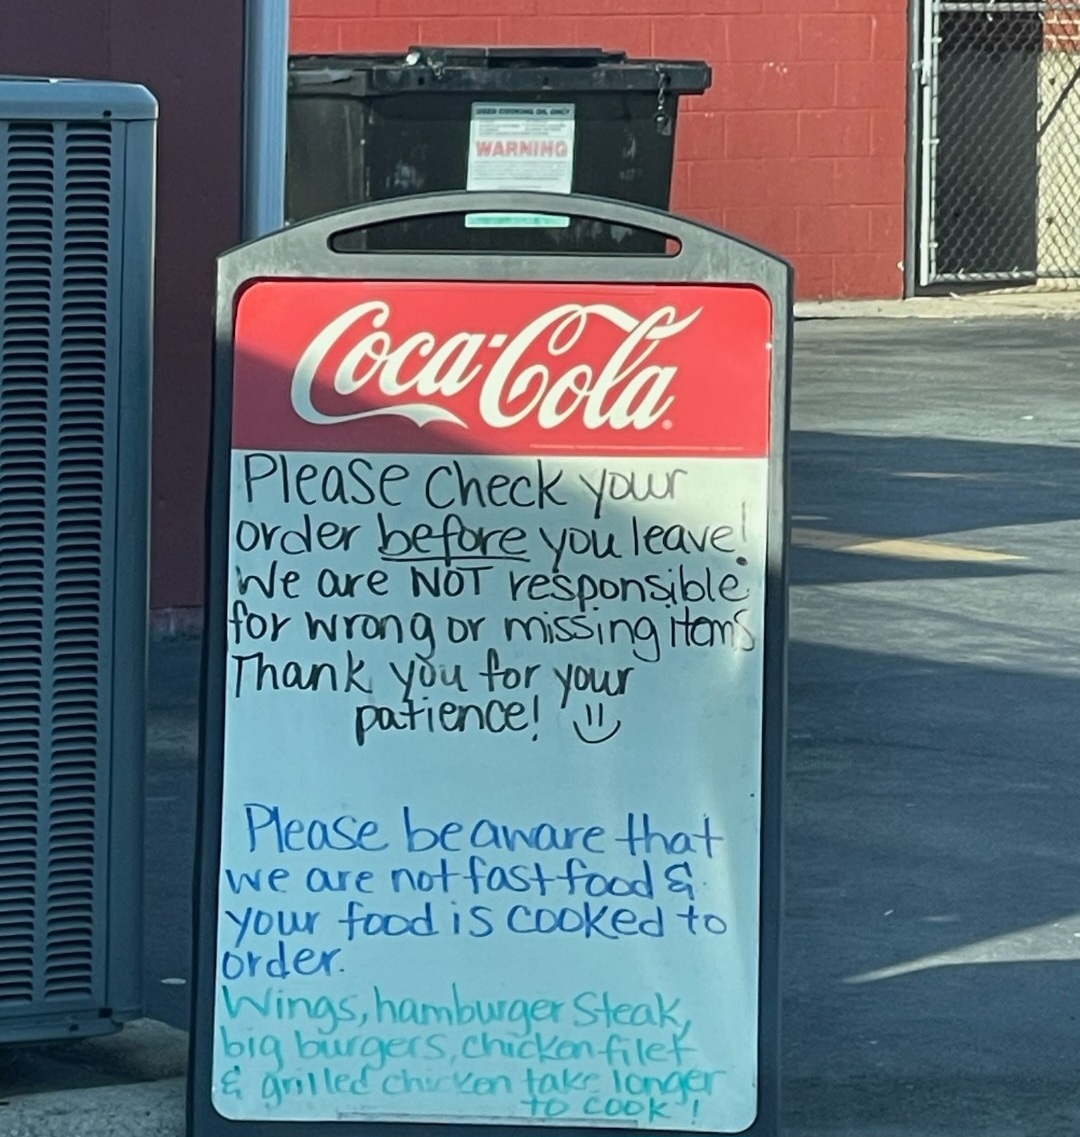 USED COOKING OIL ONLY
WARNING
Coca-Cola
Please check your
order before you leave!
We are NOT responsible
for wrong or missing items
Thank you for your
patience!
Please be aware that
we are not fast food &
your food is cooked to
order.
Wings, hamburger steak,
big burgers, chicken filet
& grilled chicken take longer
to cook!